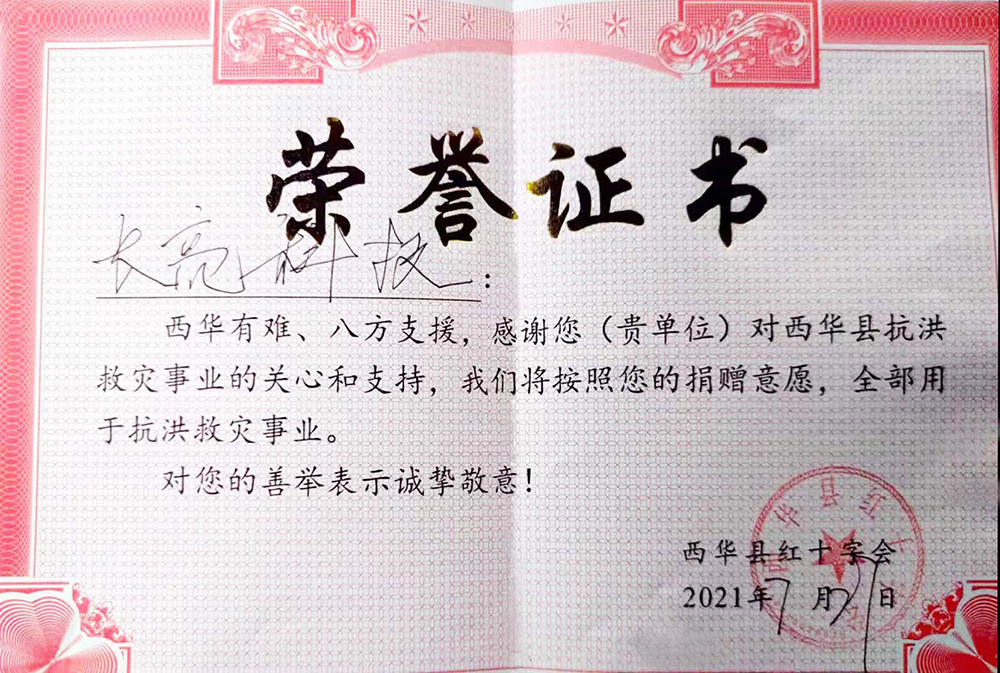 荣誉证书
长亮科技：
西华有难、八方支援，感谢您（贵单位）对西华县抗洪
救灾事业的关心和支持，我们将按照您的捐赠意愿，全部用
于抗洪救灾事业。
对您的善举表示诚挚敬意！
西华县红十字会
2021年7月31日